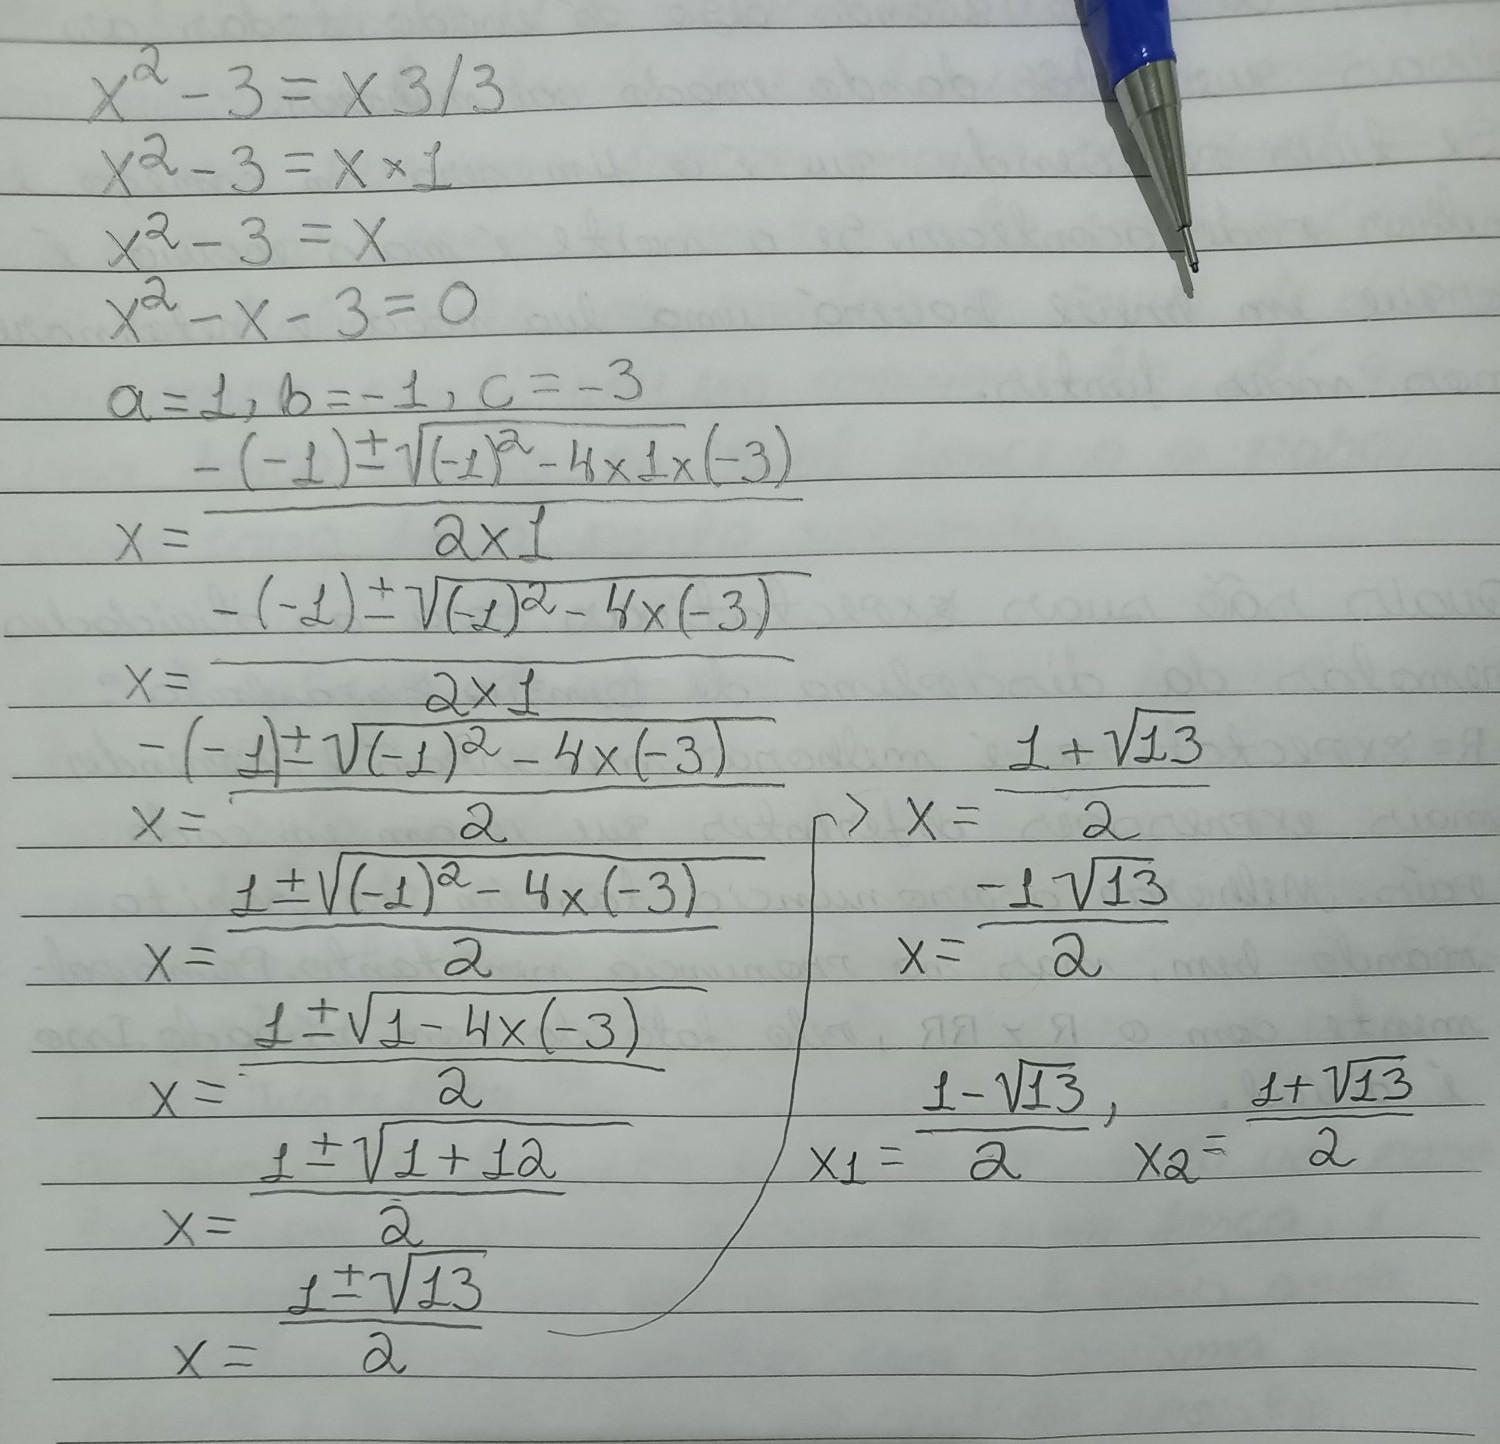 x² - 3 = x 3/3
x² - 3 = x × 1
x² - 3 = x
x² - x - 3 = 0
a = 1, b = -1, c = -3
x = (-(-1) ± √(-1)² - 4 x 1 x (-3)) / (2 x 1)
x = (-(-1) ± √(-1)² - 4 x (-3)) / (2 x 1)
x = (-(-1) ± √(-1)² - 4 x (-3)) / 2
x = (1 ± √(-1)² - 4 x (-3)) / 2
x = (1 ± √1 - 4 x (-3)) / 2
x = (1 ± √1 + 12) / 2
x = (1 ± √13) / 2
-> x = (1 + √13) / 2
x = (-1 √13) / 2
x1 = (1 - √13) / 2, x2 = (1 + √13) / 2